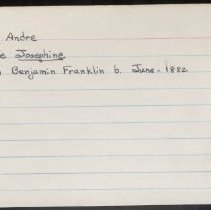 Andre
e Josephine
Benjamin Franklin b. June - 1882